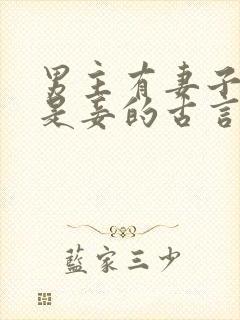 男主有妻子
是妾的古言
藍家三少